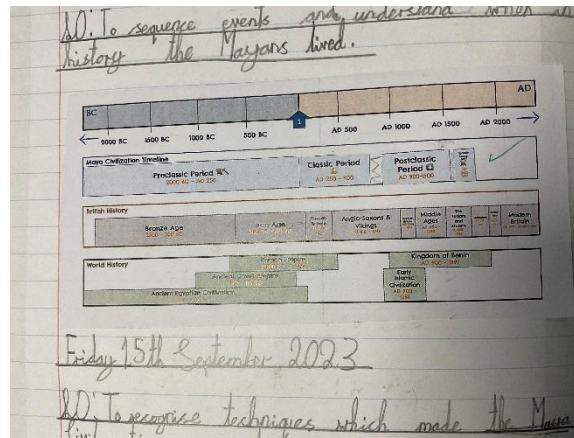 LO: To sequence events and understand when in
history the Mayans lived.
BC
AD
2000 BC 1500 BC 1000 BC 500 BC 1 AD 500 AD 1000 AD 1500 AD 2000
Maya Civilization Timeline
Preclassic Period
2000 BC - AD 250
Classic Period
AD 250 - 900
Postclassic
Period
AD 900-1500
British History
Bronze Age
Iron Age
Anglo-Saxons &
Vikings
Middle
Ages
Modern
Britain
World History
Roman Empire
Ancient Greek Empire
Ancient Egyptian Civilization
Kingdom of Benin
AD 900 - 1897
Early
Islamic
Civilization
AD 900 -
1258
Friday 15th September 2023
LO: To recognise techniques which made the Maya